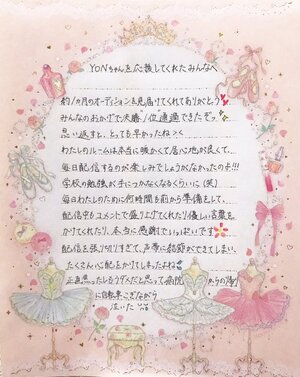 YONちゃんを応援してくれたみんなへ
約1ヵ月のオーディションを見届けてくれてありがとう
みんなのおかげで決勝1位通過できたぞ。
思い返すと、とっても早かったね><
わたしのルームは本当に暖かくて居心地が良くて、
毎日配信するのが楽しみでしょうがなかったのよ!!!
学校の勉強が手につかなくなるくらいに(笑)
毎日わたしのために何時間も前から準備をして、
配信中もコメントで盛り上げてくれたり優しい言葉を
かけてくれたり、本当に感謝でいっぱいです
配信を張り切りすぎて、声帯に結節ができてしまい、
たくさん心配をかけてしまったよね
正直焦ったしもうダメだと思って病院からの帰り
に自転車こぎながら
泣いた